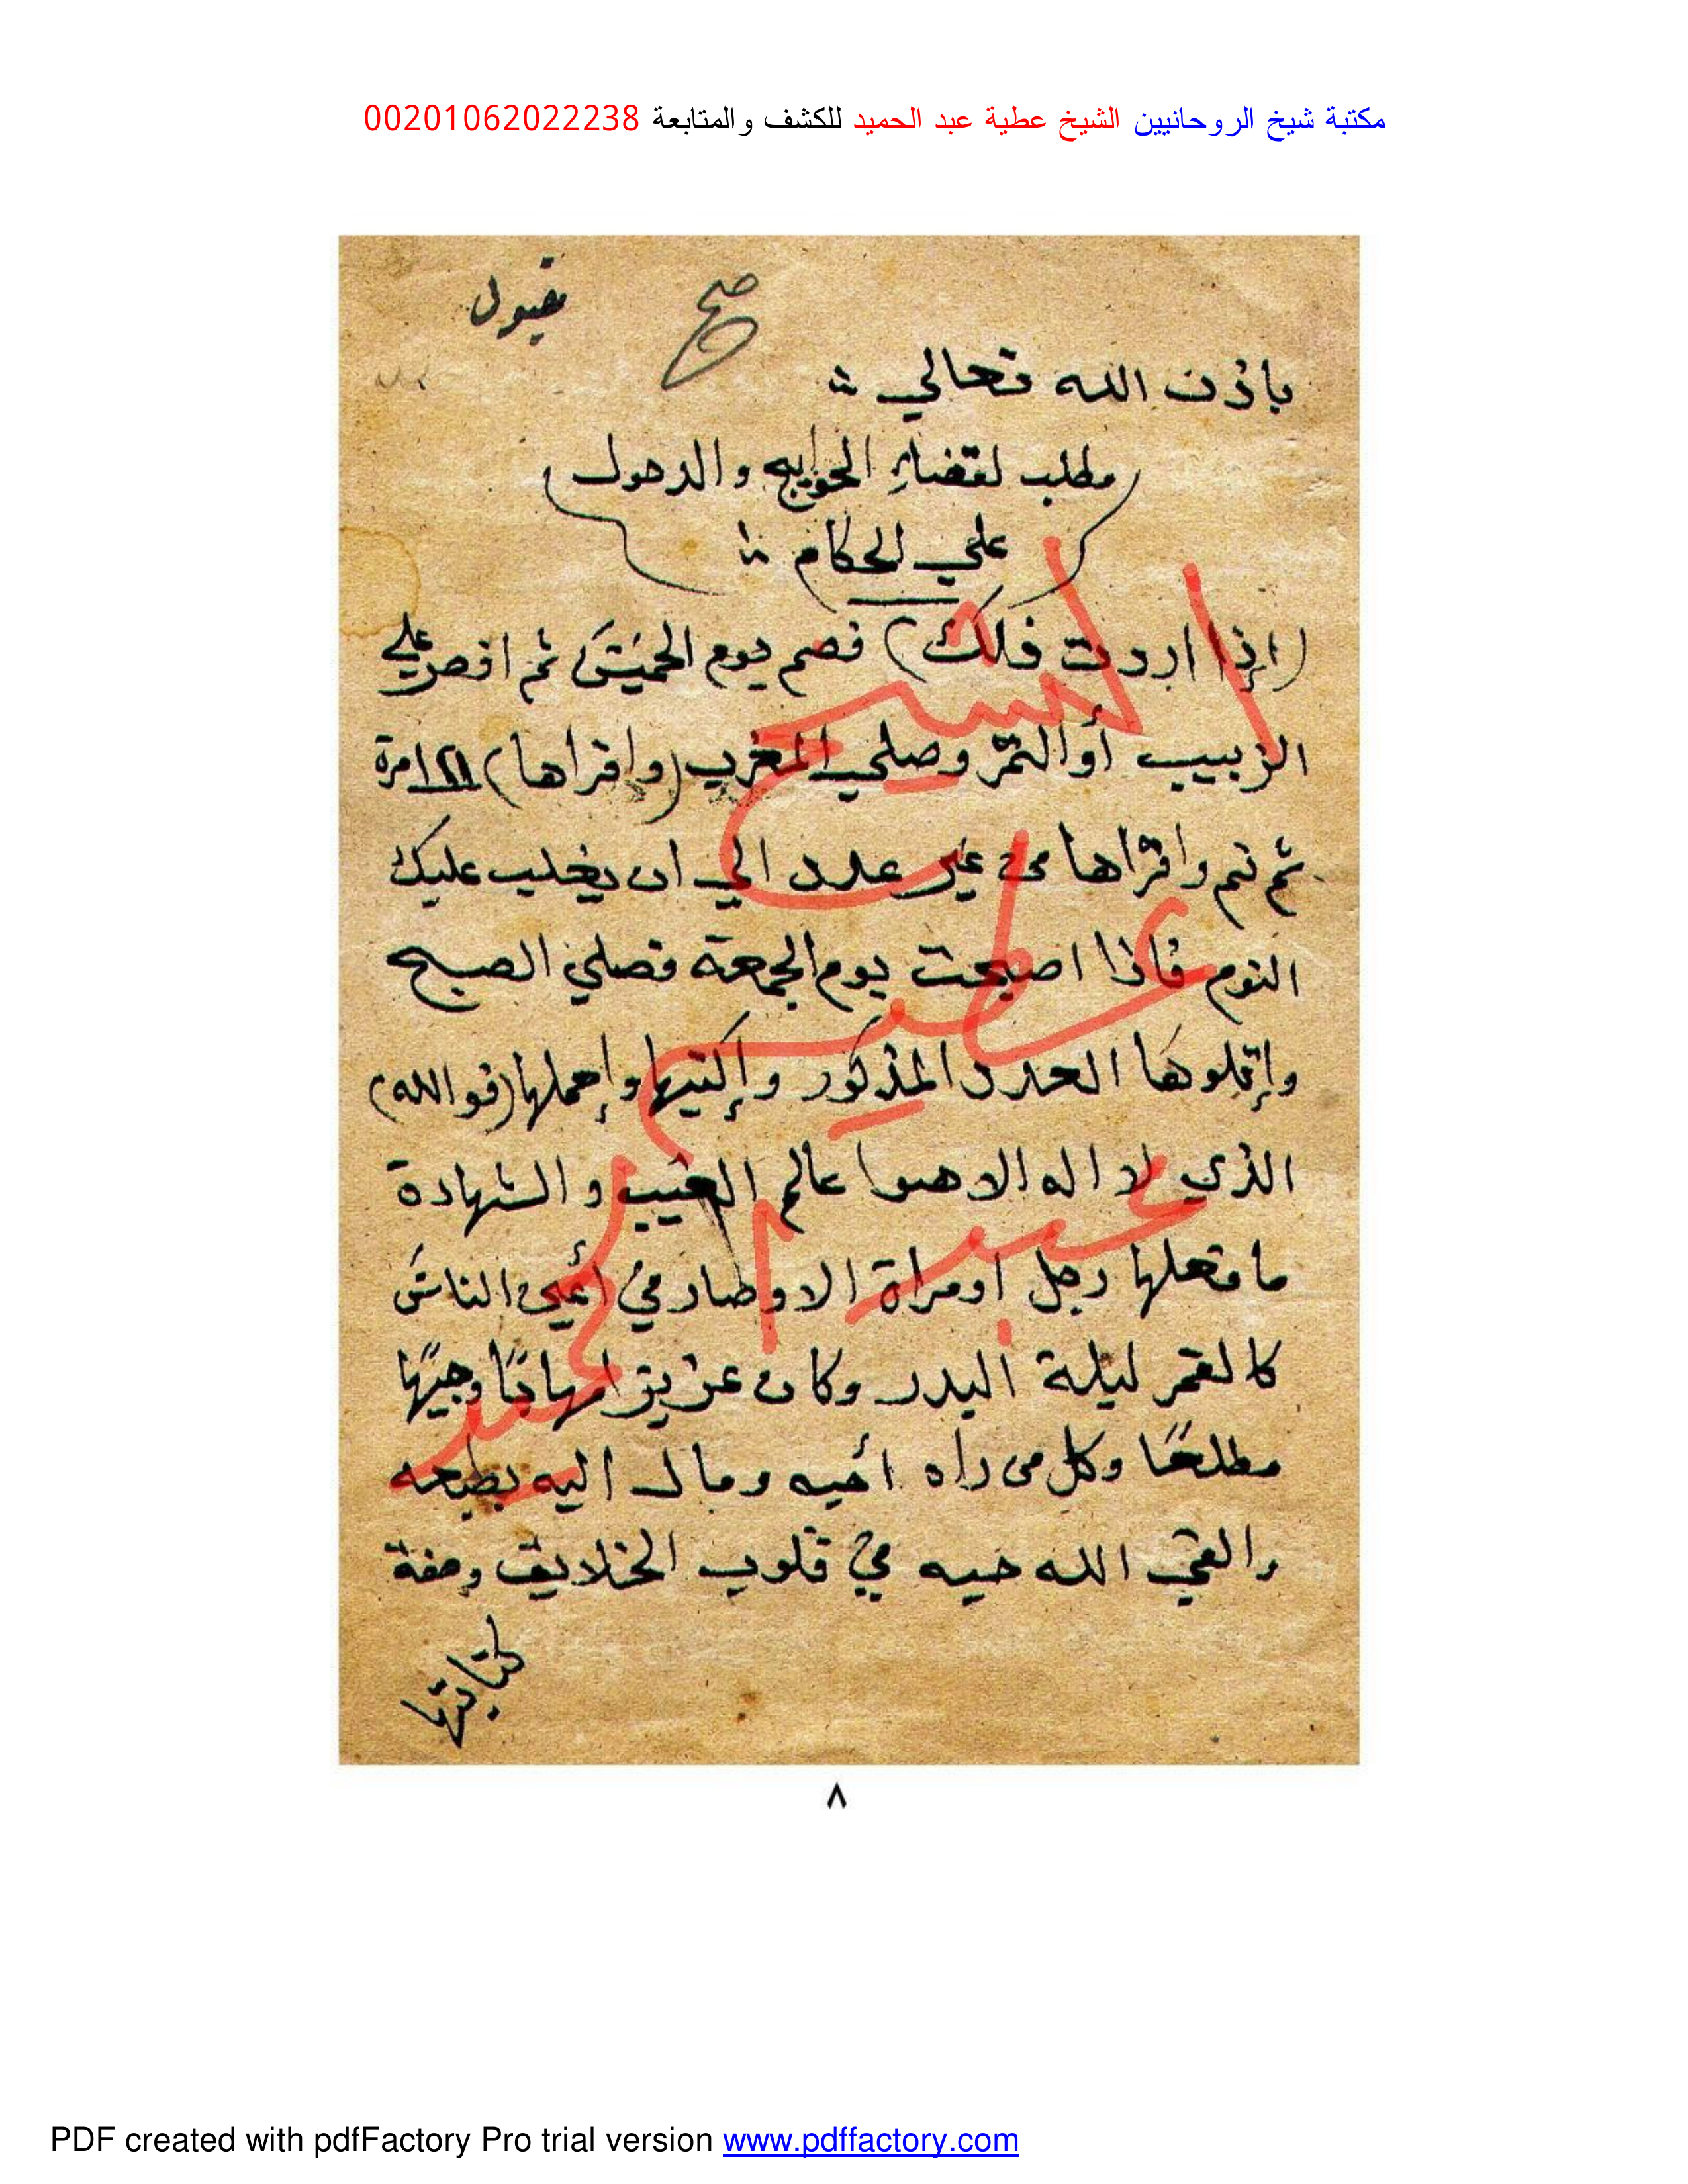 مكتبة شيخ الروحانيين الشيخ عطية عبد الحميد للكشف والمتابعة 00201062022238
صح مقبول
باذن الله تعالي
مطلب لقضاءِ الحوايج والدهول
علي الحكام
(اذا اردت فلك) فصم يوم الخميس ثم افصر علي
الزبيب أو التمر وصلي المغرب (واقراها) مرة
ثم نم واقراها من غير عدد الي ان يغلب عليك
النوم فاذا اصبحت يوم الجمعة فصلي الصبح
واتلوها العدد المذكور وإكتبها وإحملها (فوالله)
الذي لا اله الا هوا عالم الغيب والشهادة
ما فعلها رجل اومراة الا وصار في أعين الناس
كالقمر ليلة البدر وكان عزيزا مهابًا وجيهًا
مطاعًا وكل من راه أحبه ومال اليه بطبعه
والقي الله حبه في قلوب الخلايق وصفة
كتابتها
الشيخ
عطيه
عبد الحميد
٨
PDF created with pdfFactory Pro trial version www.pdffactory.com